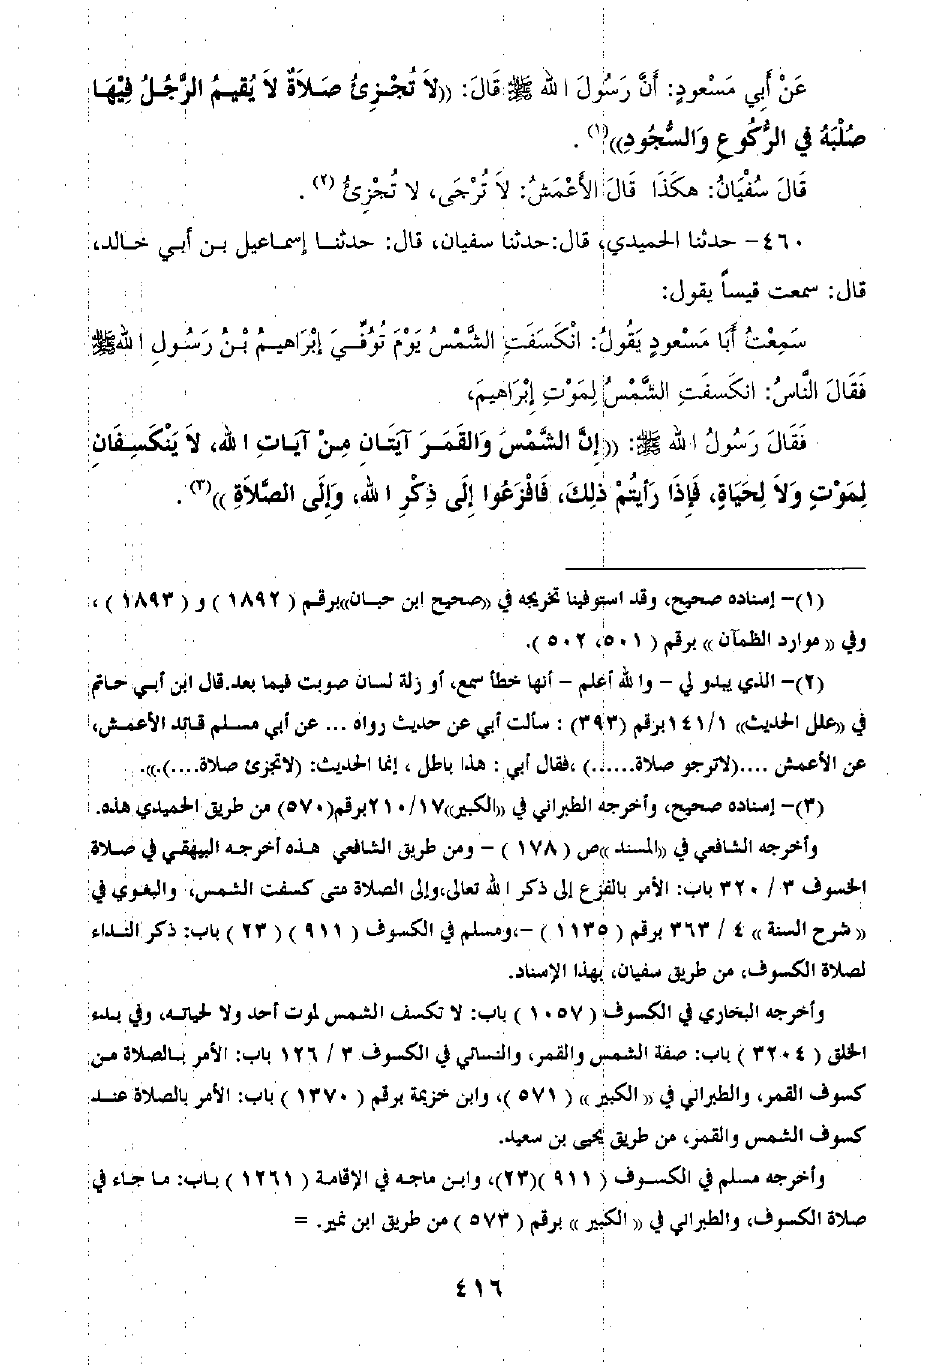 عَنْ أَبِي مَسْعودٍ: أَنَّ رَسُولَ الله ﷺ قَالَ: ((لاَ تُجْزِئُ صَلاَةٌ لاَ يُقيمُ الرَّجُلُ فِيْهَا
صُلْبَهُ فِي الرُّكُوعِ وَالسُّجُودِ))(١).
قَالَ سُفْيَانُ: هكَذَا قَالَ الأَعْمَشُ: لاَ تُرْجَى، لا تُجْزِئُ (٢).
٤٦٠- حدثنا الحميدي، قال:حدثنا سفيان، قال: حدثنا إسماعيل بن أبي خالد،
قال: سمعت قيساً يقول:
سَمِعْتُ أَبَا مَسْعودٍ يَقُولُ: انْكَسَفَتِ الشَّمْسُ يَوْمَ تُوُفِّيَ إِبْرَاهِيمُ بْنُ رَسُولِ اللهﷺ
فَقَالَ النَّاسُ: انكَسفَتِ الشَّمْسُ لِمَوْتِ إِبْرَاهيمَ،
فَقَالَ رَسُولُ الله ﷺ: ((إِنَّ الشَّمْسَ وَالقَمَرَ آيَتَانِ مِنْ آيَاتِ الله، لاَ يَنْكَسِفَانِ
لِمَوْتٍ وَلاَ لِحَيَاةٍ، فَإِذَا رَأَيتُمْ ذلِكَ، فَافْزَعُوا إِلَى ذِكْرِ الله، وَإِلَى الصَّلاَةِ))(٣).
(١)- إسناده صحيح، وقد استوفينا تخريجه في ((صحيح ابن حبان))برقم ( ١٨٩٢ ) و ( ١٨٩٣ ) ،
وفي (( موارد الظمآن )) برقم ( ٥٠١، ٥٠٢ ).
(٢)- الذي يبدو لي - والله أعلم - أنها خطأ سمع، أو زلة لسان صوبت فيما بعد.قال ابن أبي حاتم
في ((علل الحديث)) ١٤١/١برقم (٣٩٣) : سألت أبي عن حديث رواه ... عن أبي مسلم قائد الأعمش،
عن الأعمش ....(لاترجو صلاة......) ،فقال أبي : هذا باطل ، إنما الحديث: (لاتجزئ صلاة....).)).
(٣)- إسناده صحيح، وأخرجه الطبراني في ((الكبير))٢١٠/١٧برقم(٥٧٠) من طريق الحميدي هذه.
وأخرجه الشافعي في ((المسند ))ص ( ١٧٨ ) - ومن طريق الشافعي هذه أخرجه البيهقي في صلاة
الخسوف ٣ / ٣٢٠ باب: الأمر بالفزع إلى ذكر الله تعالى،وإلى الصلاة متى كسفت الشمس، والبغوي في
(( شرح السنة )) ٤ / ٣٦٣ برقم ( ١١٣٥ ) -،ومسلم في الكسوف ( ٩١١ ) ( ٢٣ ) باب: ذكر النداء
لصلاة الكسوف، من طريق سفيان، بهذا الإسناد.
وأخرجه البخاري في الكسوف ( ١٠٥٧ ) باب: لا تكسف الشمس لموت أحد ولا لحياته، وفي بدء
الخلق ( ٣٢٠٤ ) باب: صفة الشمس والقمر، والنسائي في الكسوف ٣ / ١٢٦ باب: الأمر بالصلاة من
كسوف القمر، والطبراني في (( الكبير )) ( ٥٧١ )، وابن خزيمة برقم ( ١٣٧٠ ) باب: الأمر بالصلاة عند
كسوف الشمس والقمر، من طريق يحيى بن سعيد.
وأخرجه مسلم في الكسوف ( ٩١١ )(٢٣)، وابن ماجه في الإقامة ( ١٢٦١ ) باب: ما جاء في
صلاة الكسوف، والطبراني في (( الكبير )) برقم ( ٥٧٣ ) من طريق ابن نمير. =
٤١٦